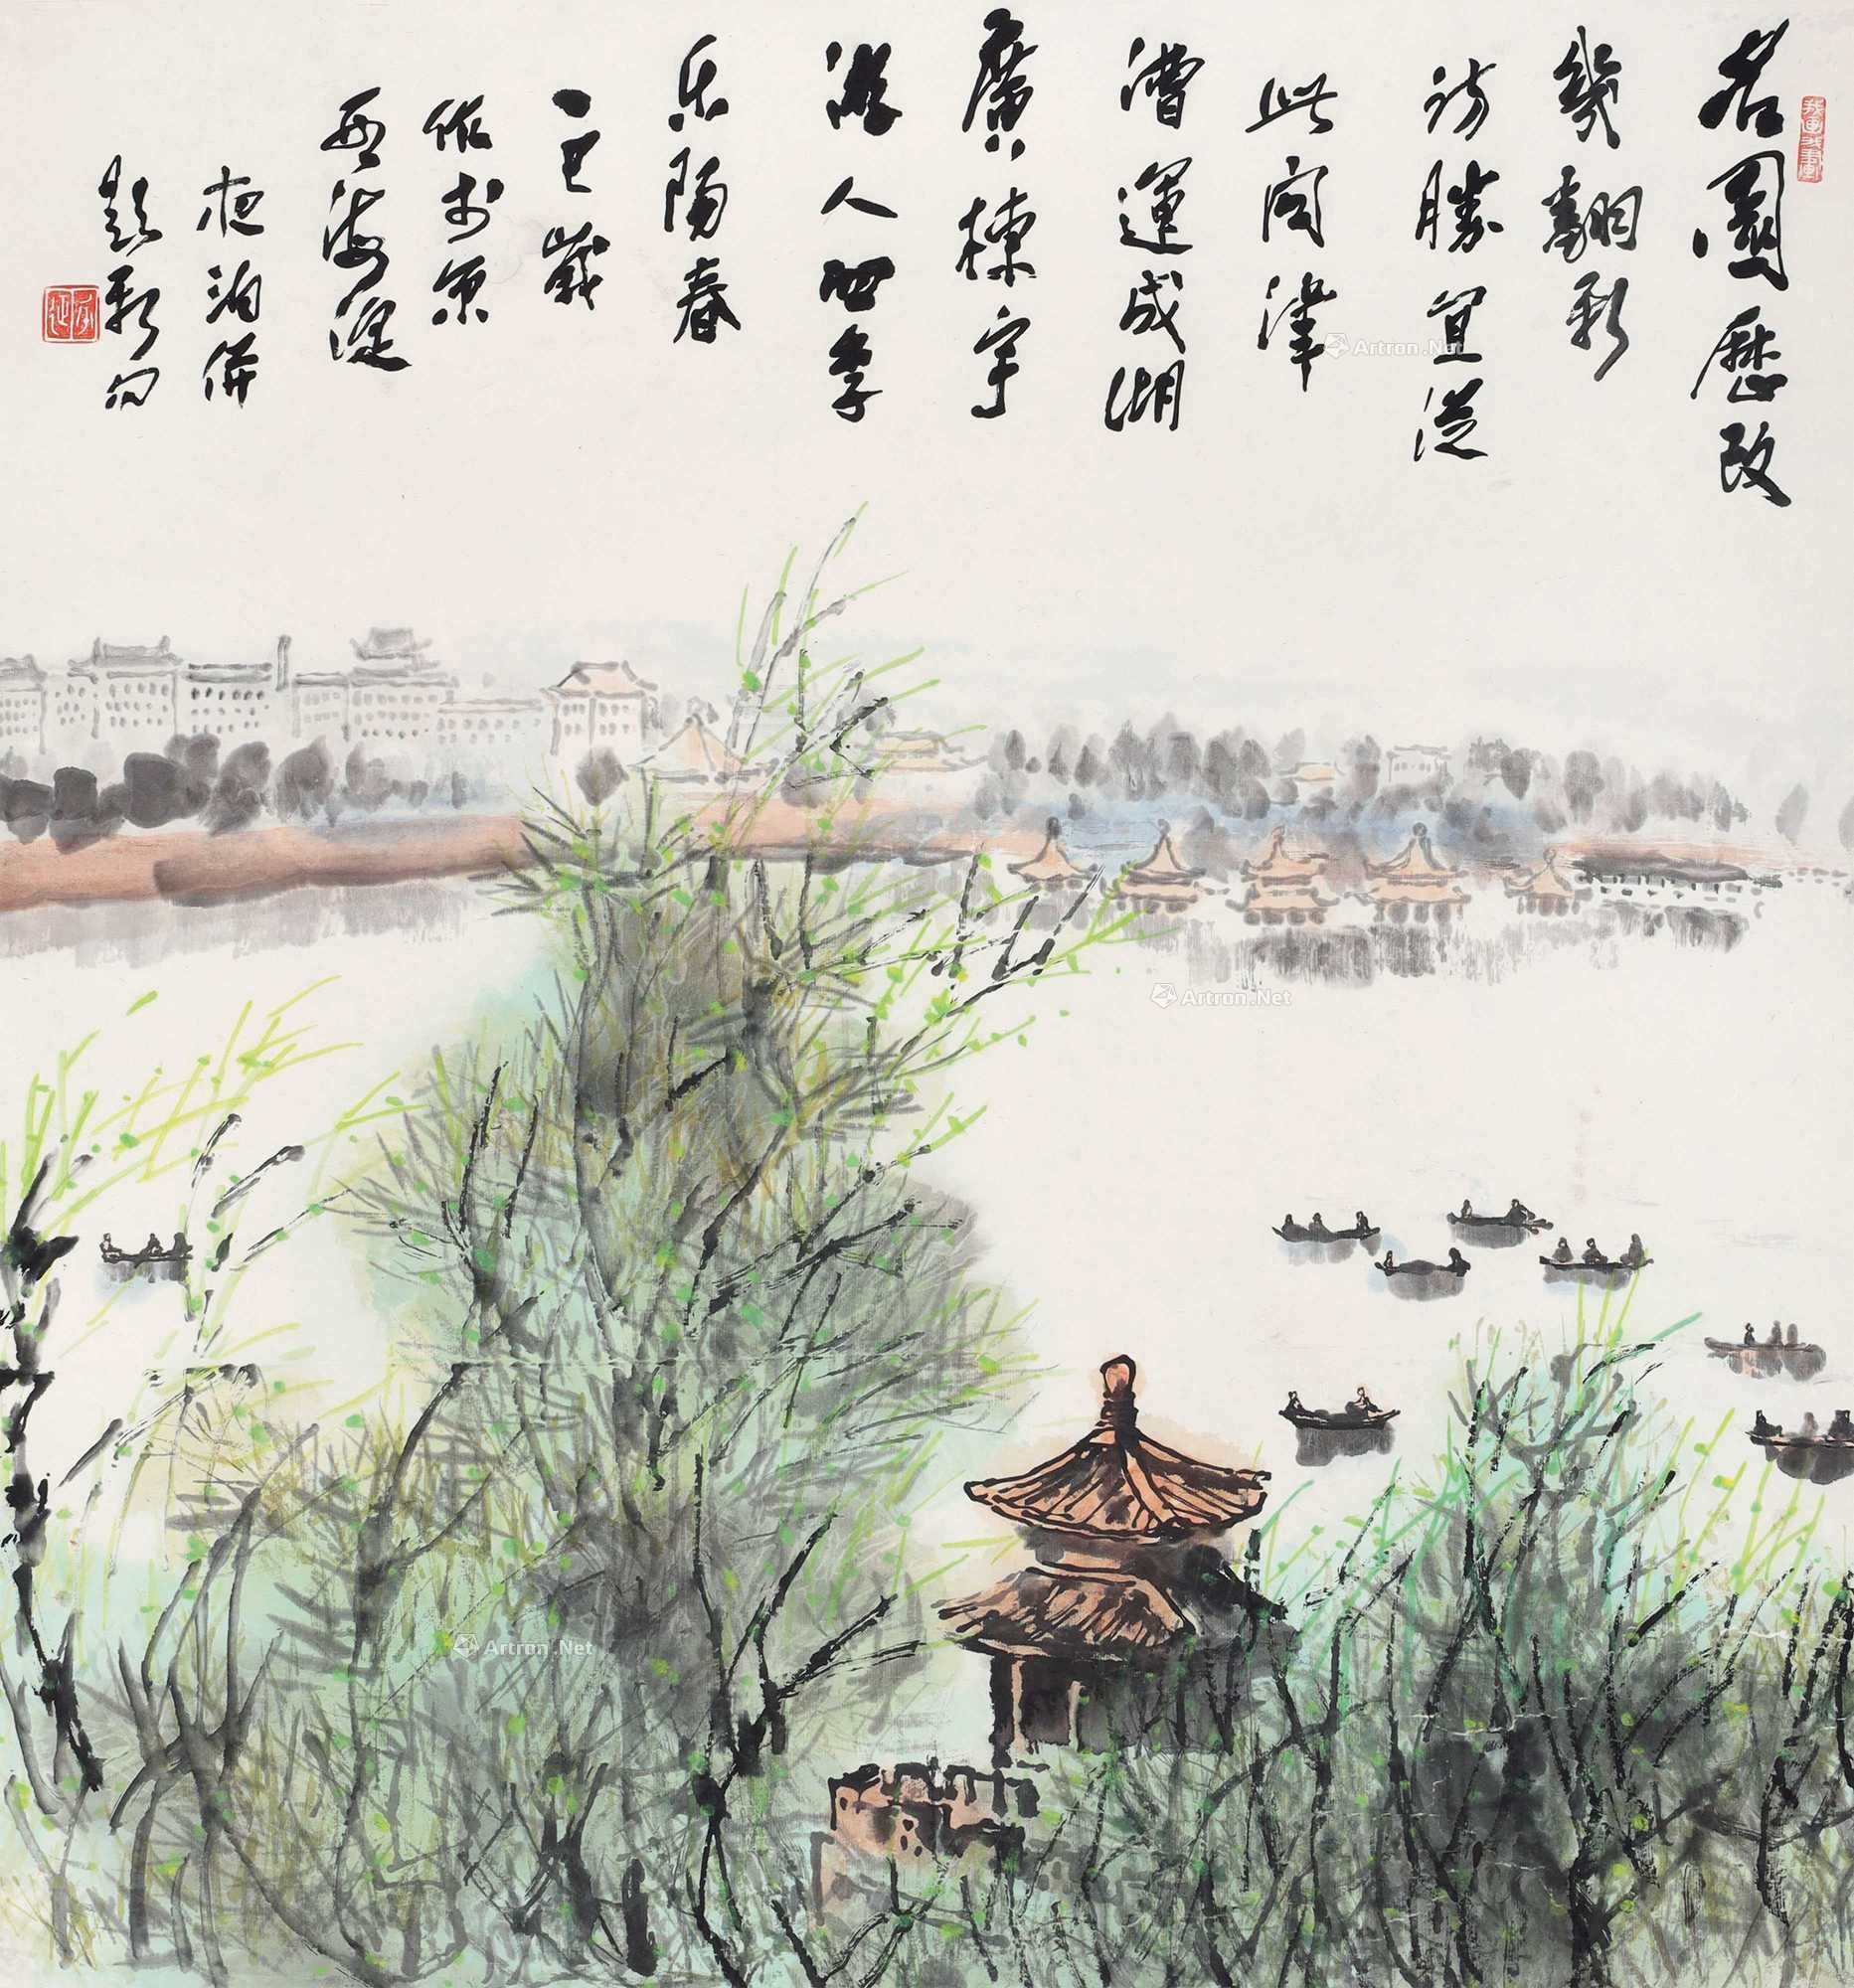 名園歷改
幾翻新
訪勝宜從
此問津
漕運成湖
廣棟宇
游人四季
乐陽春
巳歲
作於京
西海淀
夜泊併
題新句
Artron.Net
Artron.Net
Artron.Net